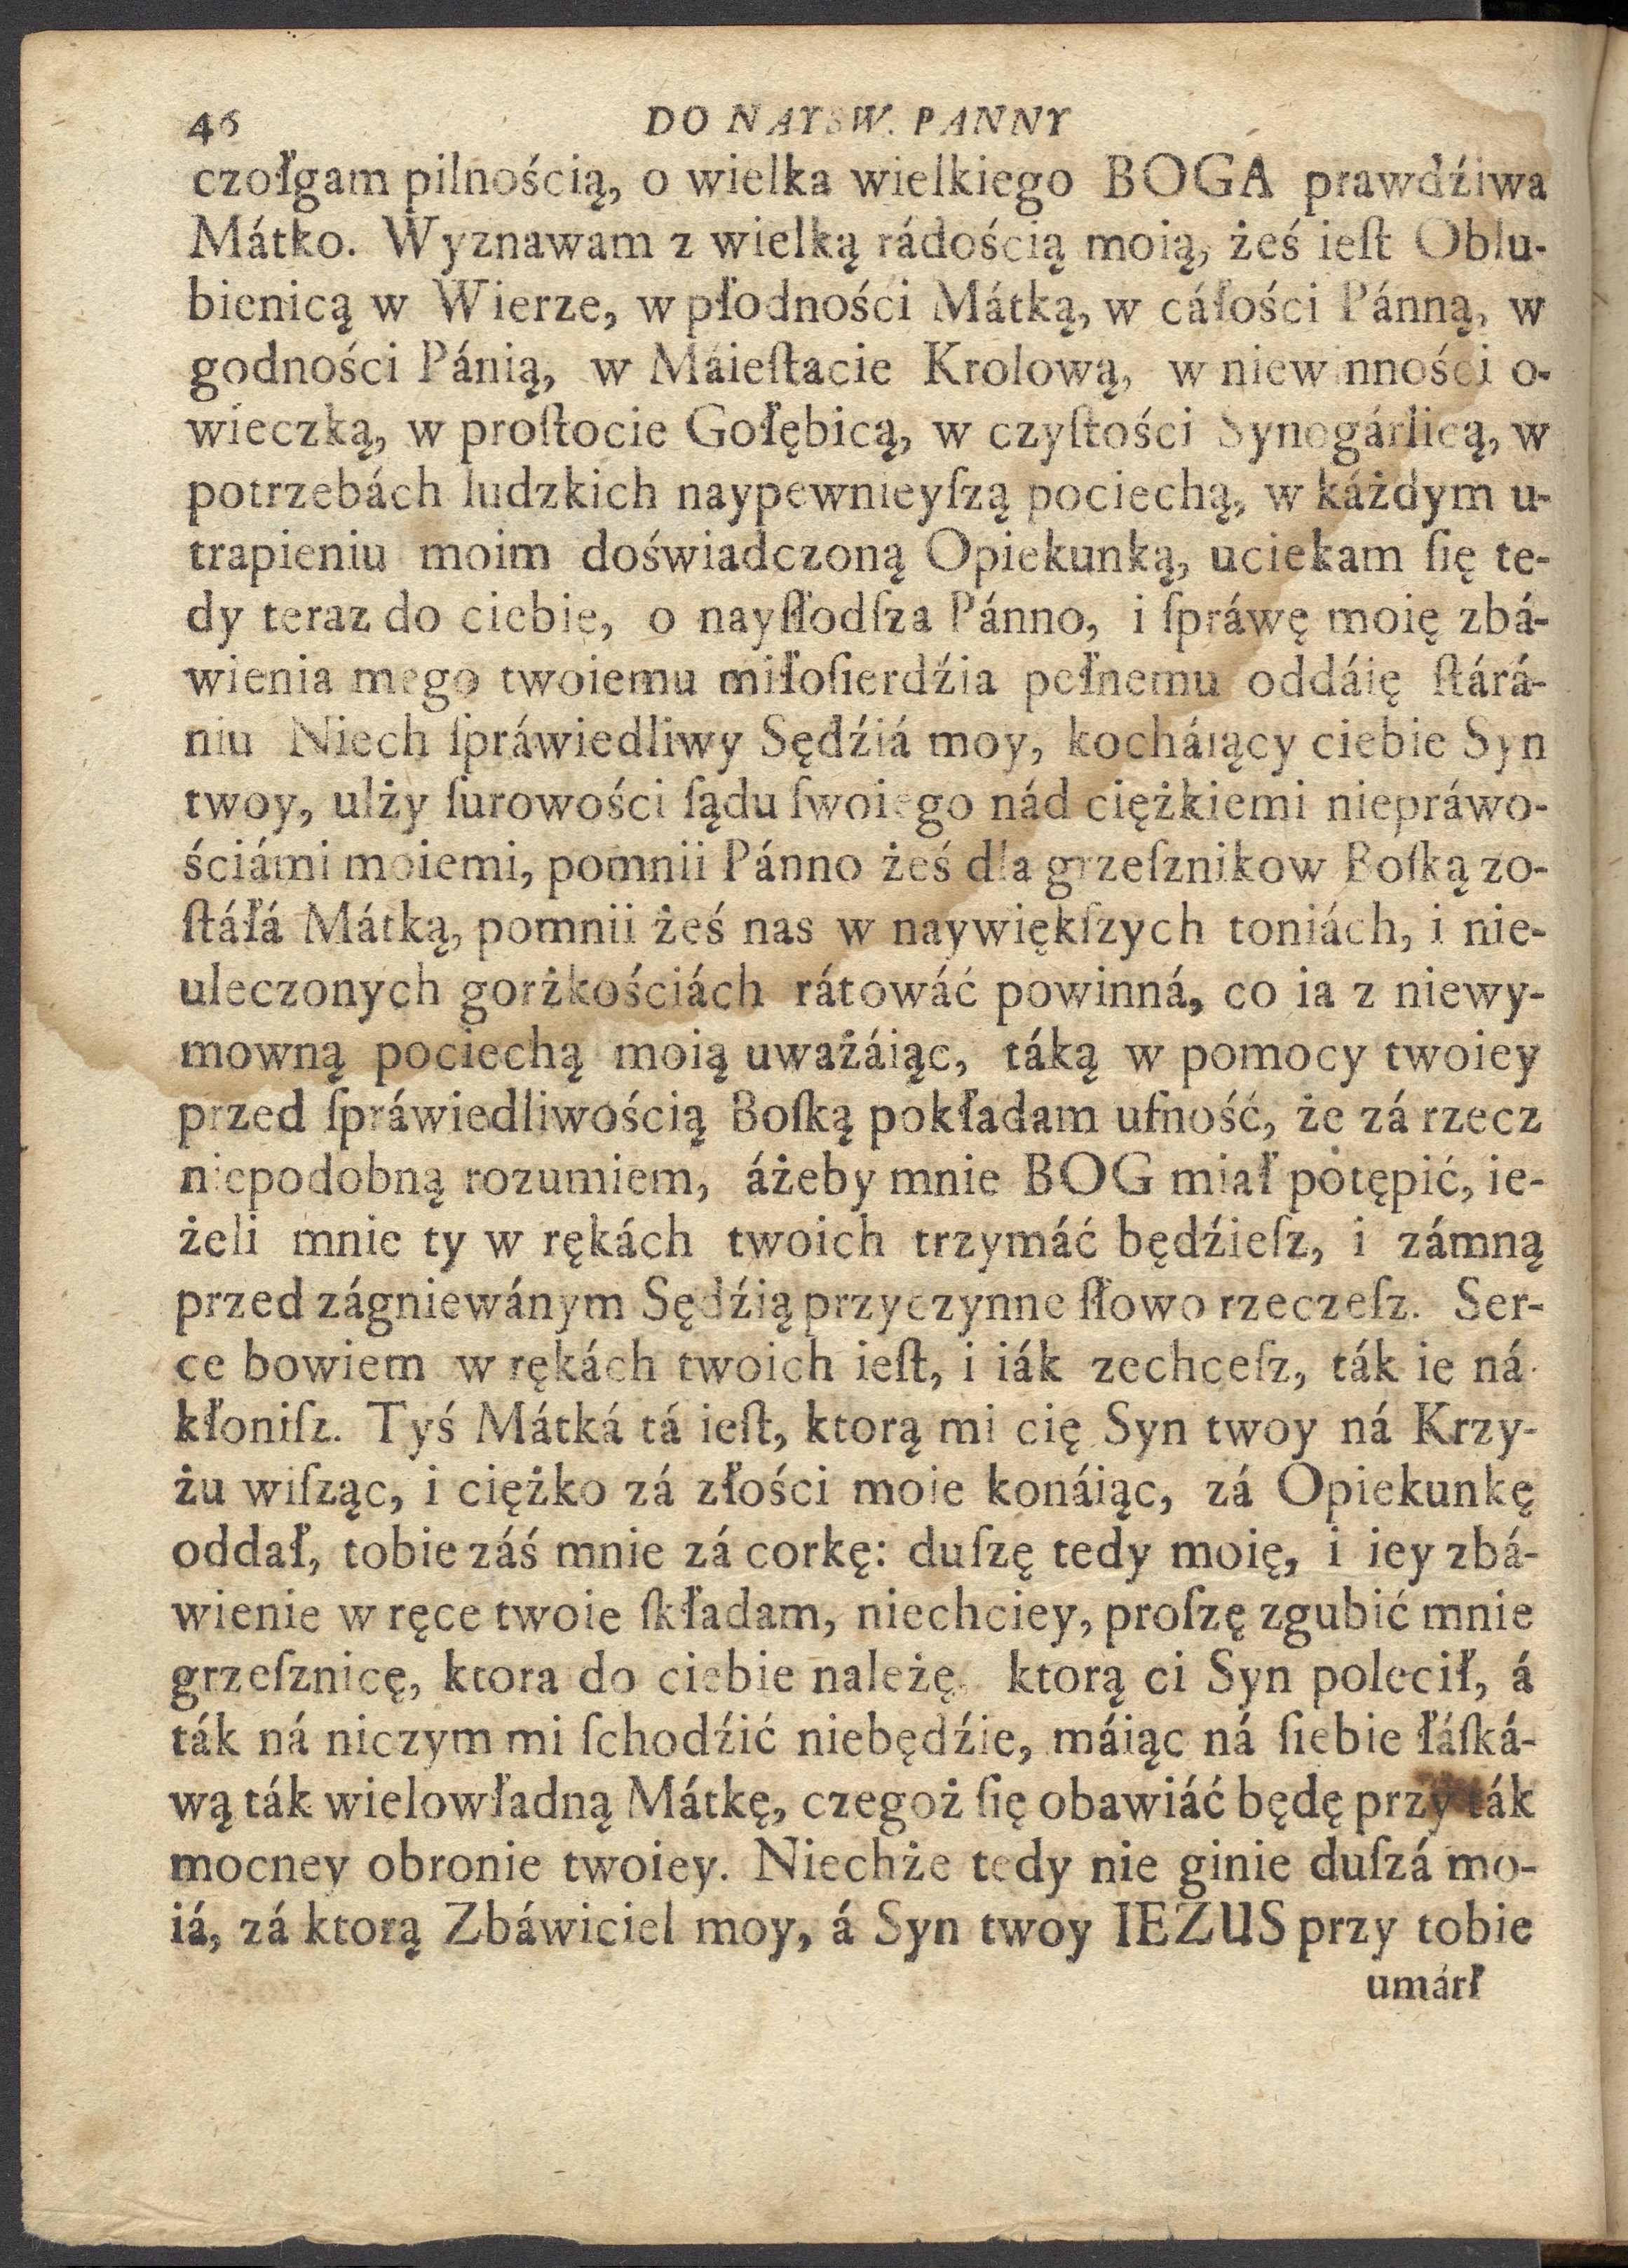 46 DO NAYSW. PANNY
czołgam pilnością, o wielka wielkiego BOGA prawdźiwa
Mátko. Wyznawam z wielką rádością moią, żeś ieſt Oblu-
bienicą w Wierze, w płodności Mátką, w cáłości Pánną, w
godności Pánią, w Máieſtacie Krolową, w niewinności o-
wieczką, w proſtocie Gołębicą, w czyſtości Synogárlicą, w
potrzebách ludzkich naypewnieyſzą pociechą, w káżdym u-
trapieniu moim doświadczoną Opiekunką, uciekam ſię te-
dy teraz do ciebie, o nayſłodſza Pánno, i ſpráwę moię zbá-
wienia mego twoiemu miłoſierdźia pełnemu oddáię ſtárá-
niu Niech ſpráwiedliwy Sędźiá moy, kocháiący ciebie Syn
twoy, ulży ſurowości ſądu ſwoiego nád ciężkiemi niepráwo-
ściámi moiemi, pomnii Pánno żeś dla grzeſznikow Boſką zo-
ſtáłá Mátką, pomnii żeś nas w naywiękſzych toniách, i nie-
uleczonych gorżkościách rátowáć powinná, co ia z niewy-
mowną pociechą moią uważáiąc, táką w pomocy twoiey
przed ſpráwiedliwością Boſką pokładam ufność, że zá rzecz
niepodobną rozumiem, áżeby mnie BOG miał potępić, ie-
żeli mnie ty w rękách twoich trzymáć będźieſz, i zámną
przed zágniewánym Sędźią przyczynne ſłowo rzeczeſz. Ser-
ce bowiem w rękách twoich ieſt, i iák zechceſz, ták ie ná-
kłoniſz. Tyś Mátká tá ieſt, ktorą mi cię Syn twoy ná Krzy-
żu wiſząc, i ciężko zá złości moie konáiąc, zá Opiekunkę
oddał, tobie záś mnie zá corkę: duſzę tedy moię, i iey zbá-
wienie w ręce twoie ſkładam, niechciey, proſzę zgubić mnie
grzeſznicę, ktora do ciebie należę, ktorą ci Syn polecił, á
ták ná niczym mi ſchodźić niebędźie, máiąc ná ſiebie łáſká-
wą ták wielowładną Mátkę, czegoż ſię obawiáć będę przy ták
mocney obronie twoiey. Niechże tedy nie ginie duſzá mo-
iá, zá ktorą Zbáwiciel moy, á Syn twoy IEZUS przy tobie
umárł